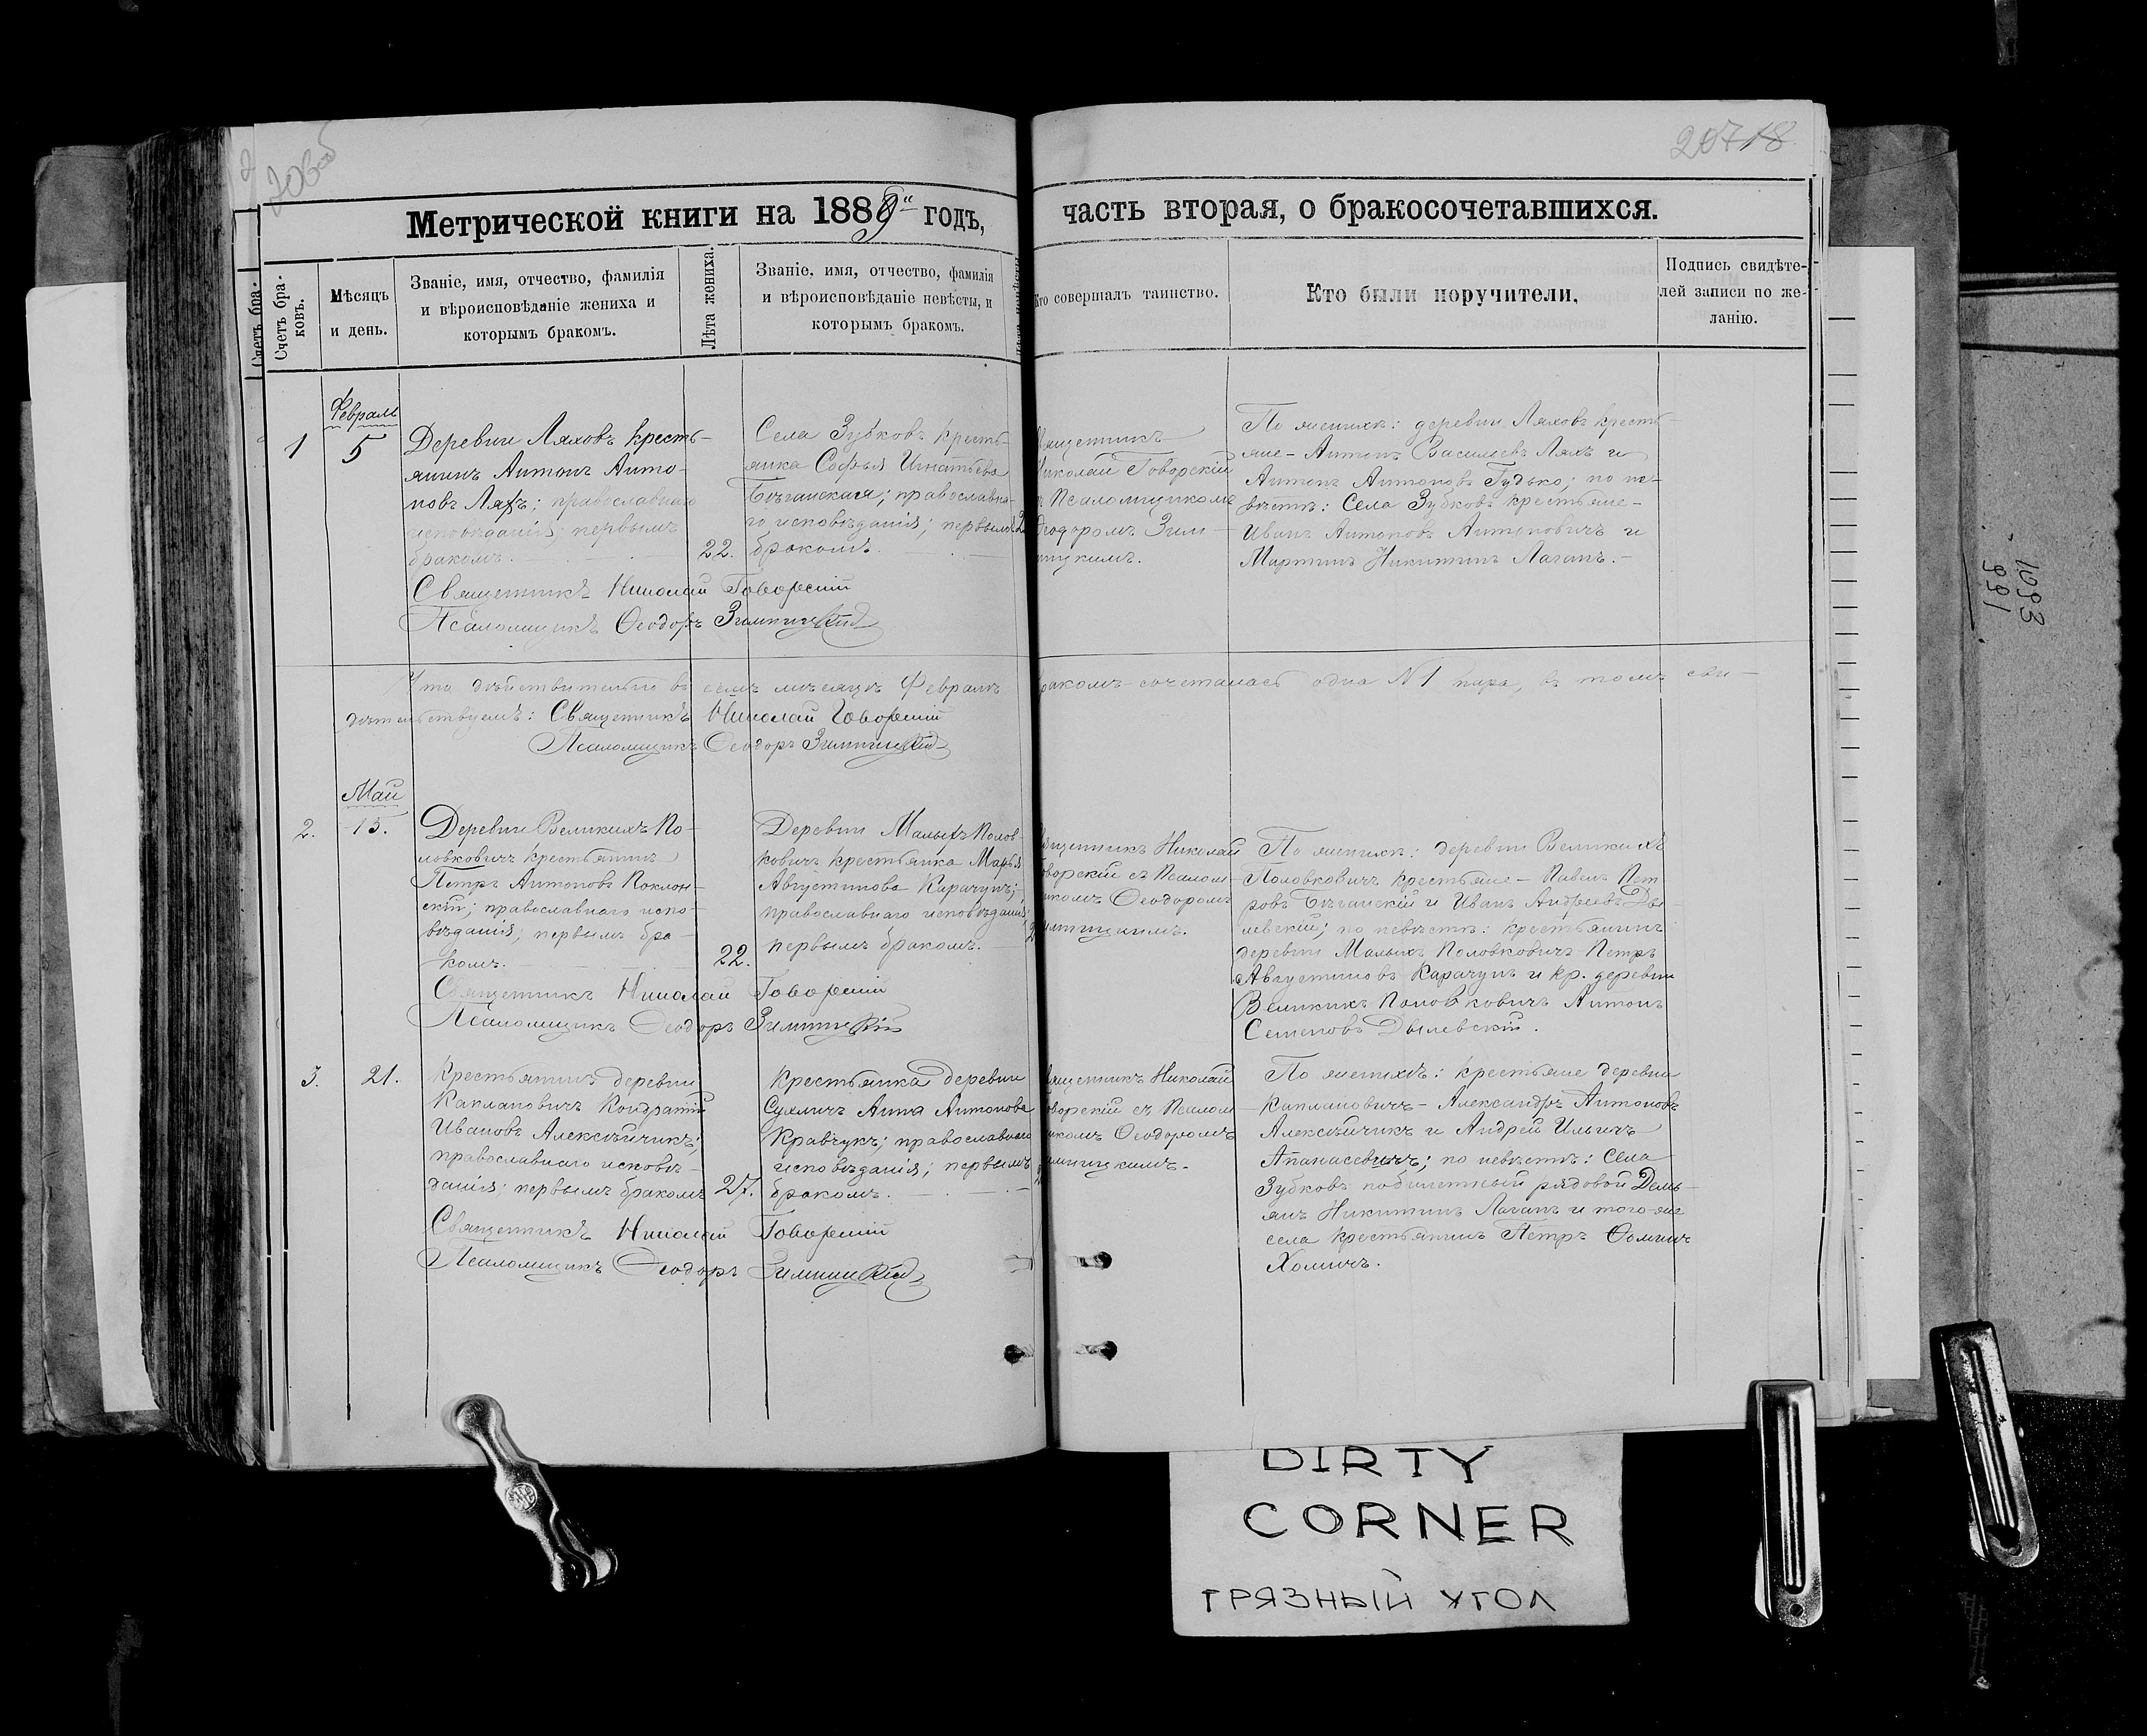 206об
20718
Метрической книги на 1889 годъ,
часть вторая, о бракосочетавшихся.
Счетъ бра-
Счетъ бра-
ковъ.
Мѣсяцъ
и день.
Званіе, имя, отчество, фамилія
и вѣроисповѣданіе жениха и
которымъ бракомъ.
Лѣта жениха.
Званіе, имя, отчество, фамилія
и вѣроисповѣданіе невѣсты, и
которымъ бракомъ.
Кто совершалъ таинство.
Кто были поручители,
Подпись свидѣте-
лей записи по же-
ланію.
1
Февраль
5
Деревни Ляховъ кресть-
янинъ Антонъ Анто-
новъ Ляхъ; православнаго
исповѣданія; первымъ
бракомъ.
22.
Села Зубковъ кресть-
янка Софья Игнатьева
Бѣганская; православна-
го исповѣданія; первымъ
бракомъ.
Священникъ
Николай Говорскій
съ Псаломщикомъ
Ѳеодоромъ Зим-
ницкимъ.
По женихѣ: деревни Ляховъ кресть-
яне - Антонъ Васильевъ Ляхъ и
Антонъ Антоновъ Гудько; по не-
вѣстѣ: Села Зубковъ крестьяне -
Иванъ Антоновъ Антоновичъ и
Мартинъ Никитинъ Лаганъ.-
Священникъ Николай Говорскій
Псаломщикъ Ѳеодоръ Зимницкій
Что дѣйствительно въ семъ мѣсяцѣ Февралѣ бракомъ сочеталась одна №1 пара, въ томъ сви-
дѣтельствуемъ: Священникъ Николай Говорскій
Псаломщикъ Ѳеодоръ Зимницкій
2.
Май
15.
Деревни Великихъ По-
ловковичъ крестьянинъ
Петръ Антоновъ Поклон-
скій; православнаго испо-
вѣданія; первымъ бра-
комъ.
22.
Деревни Малыхъ Полов-
ковичъ крестьянка Марья
Августинова Карачунъ;
православнаго исповѣданія;
первымъ бракомъ.
Священникъ Николай
Говорскій съ Псалом-
щикомъ Ѳеодоромъ
Зимницкимъ.
По женихѣ: деревни Великихъ
Половковичъ крестьяне - Павелъ Пет-
ровъ Бѣганскій и Иванъ Андреевъ Ды-
левскій; по невѣстѣ: крестьянинъ
деревни Малыхъ Половковичъ Петръ
Августиновъ Карачунъ и кр. деревни
Великихъ Половковичъ Антонъ
Семеновъ Дылевскій.
Священникъ Николай Говорскій
Псаломщикъ Ѳеодоръ Зимницкій
3.
21.
Крестьянинъ деревни
Каплановичъ Кондратій
Ивановъ Алексѣйчикъ;
православнаго исповѣ-
данія; первымъ бракомъ
27.
Крестьянка деревни
Сухличъ Анна Антонова
Кравчукъ; православнаго
исповѣданія; первымъ
бракомъ.
Священникъ Николай
Говорскій съ Псалом-
щикомъ Ѳеодоромъ
Зимницкимъ.
По женихѣ: крестьяне деревни
Каплановичъ - Александръ Антоновъ
Алексѣйчикъ и Андрей Ильичъ
Апанасевичъ; по невѣстѣ: Села
Зубковъ побилетный рядовой Демь-
янъ Никитинъ Лаганъ и того-же
села крестьянинъ Петръ Ѳоминъ
Хоминъ.
Священникъ Николай Говорскій
Псаломщикъ Ѳеодоръ Зимницкій
1093
991
DIRTY
CORNER
ГРЯЗНЫЙ УГОЛ